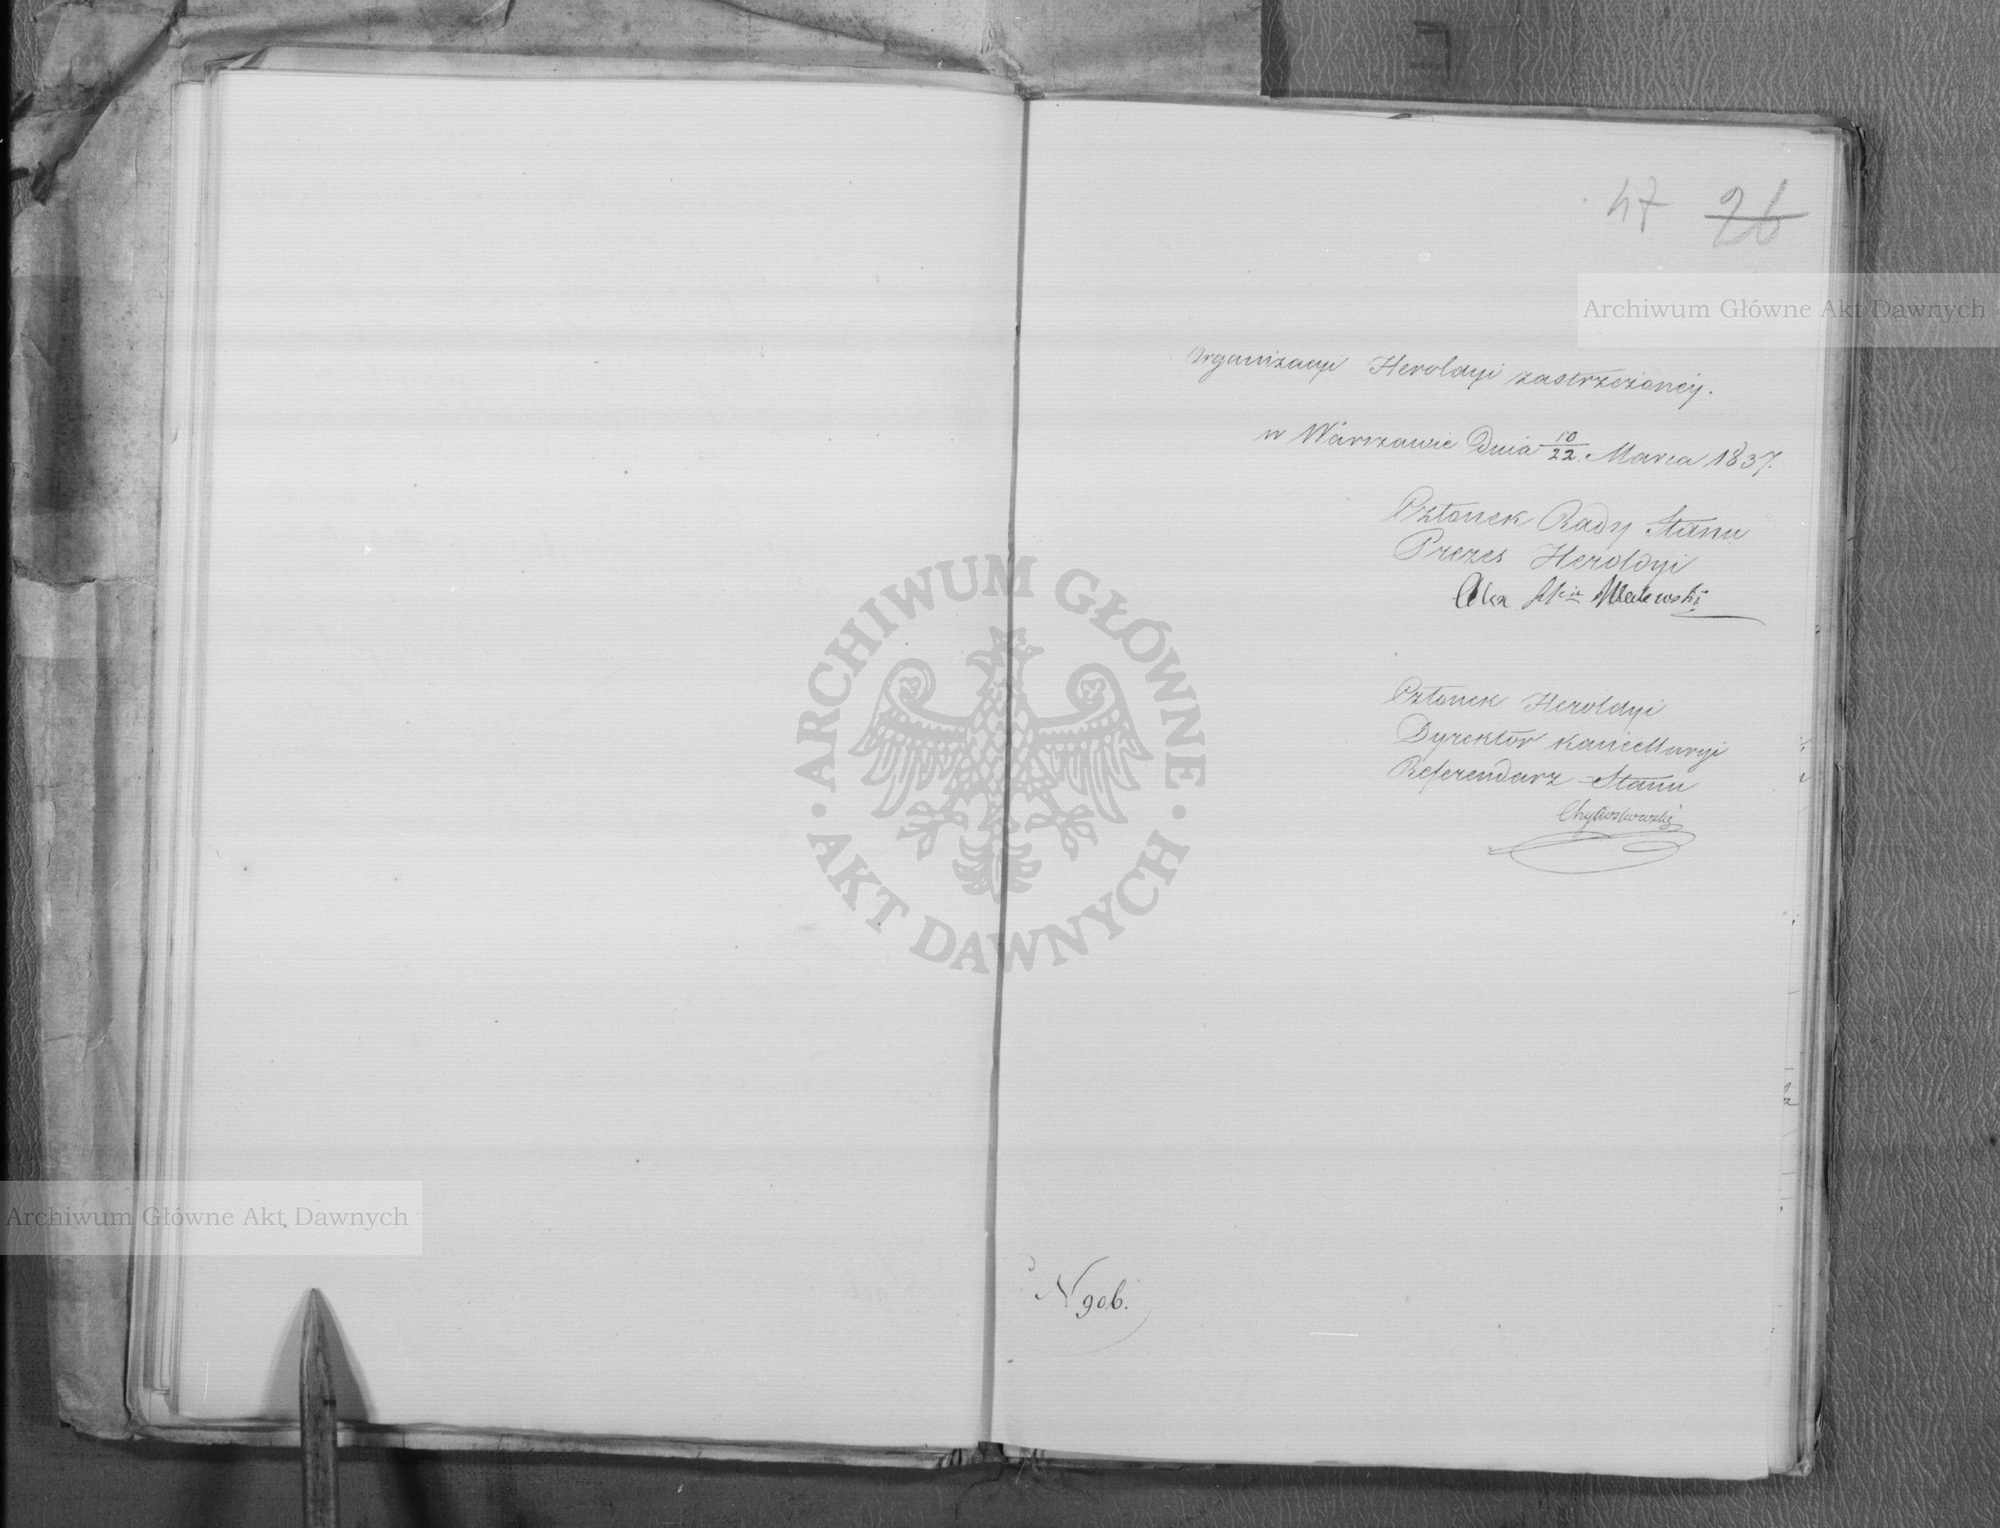 47 26
Archiwum Główne Akt Dawnych
Organizacyi Heroldyi zastrzeżoney.
w Warszawie Dnia 10/22. Marca 1837.
Członek Rady Stanu
Prezes Heroldyi
Alex Walewski
Członek Heroldyi
Dyrektor Kancellaryi
Referendarz Stanu
ARCHIWUM GŁÓWNE
· AKT DAWNYCH ·
Archiwum Główne Akt Dawnych
N 906.